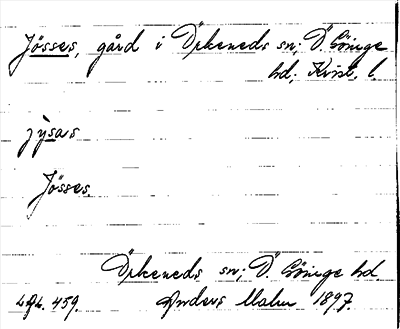 Jösses, gård i Örkeneds sn; Ö. Göinge
hd, Krist. l.
jỳsas
Jösses
Örkeneds sn; Ö. Göinge hd
LGL. 459. Anders Malm 1897.